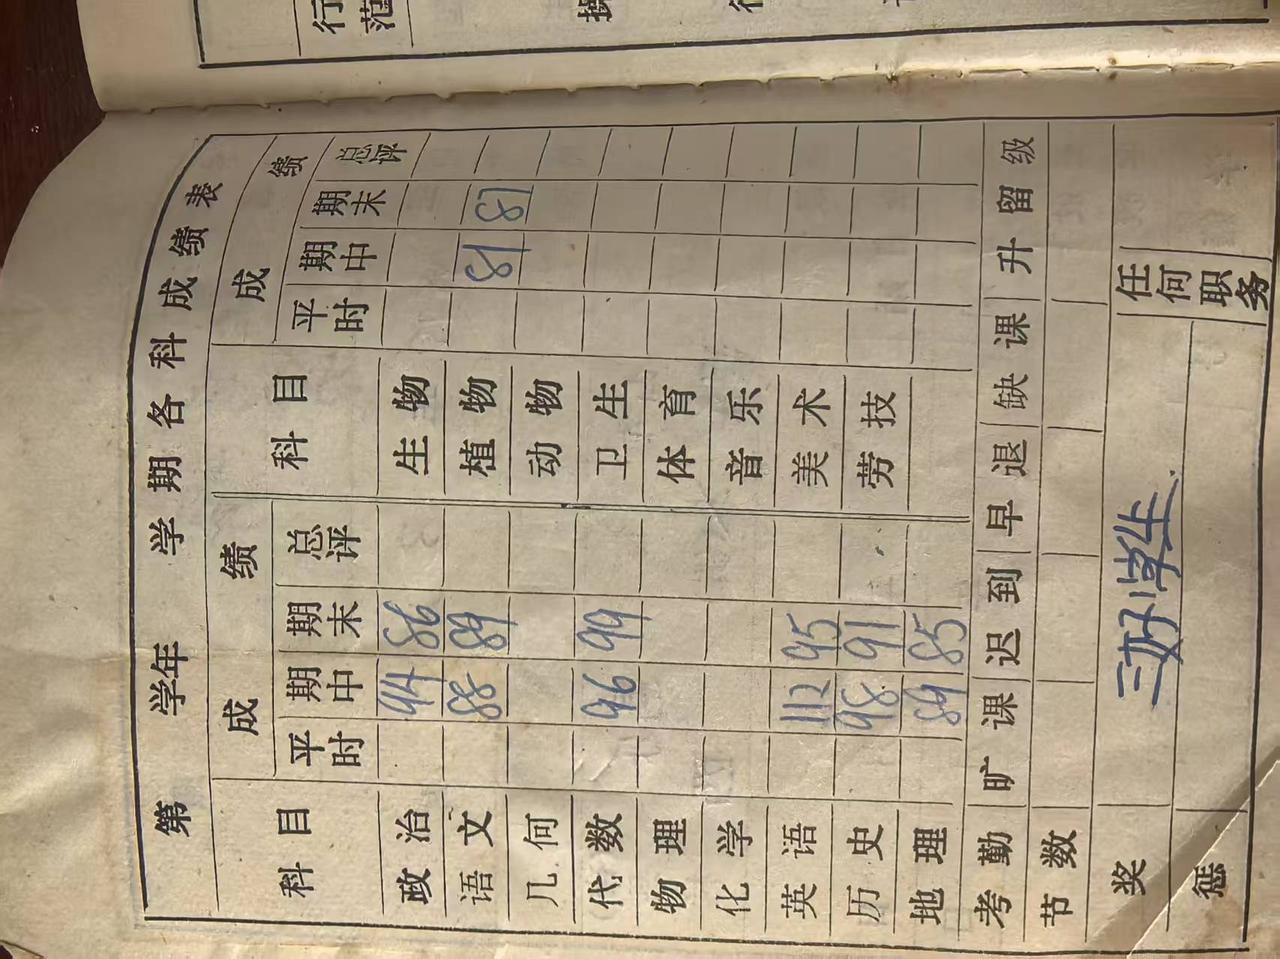 第 学年 学期各科成绩表
科目 成绩 科目 成绩
平时 期中 期末 总评 平时 期中 期末 总评
政治 94 86 生物
语文 88 89 植物 81 87
几何 动物
代数 96 99 卫生
物理 体育
化学 音乐
英语 112 95 美术
历史 98 91 劳技
地理 89 85
考勤 旷课 迟到 早退 缺课 升留级
节数
奖 三好学生. 任何职务
惩
行
范